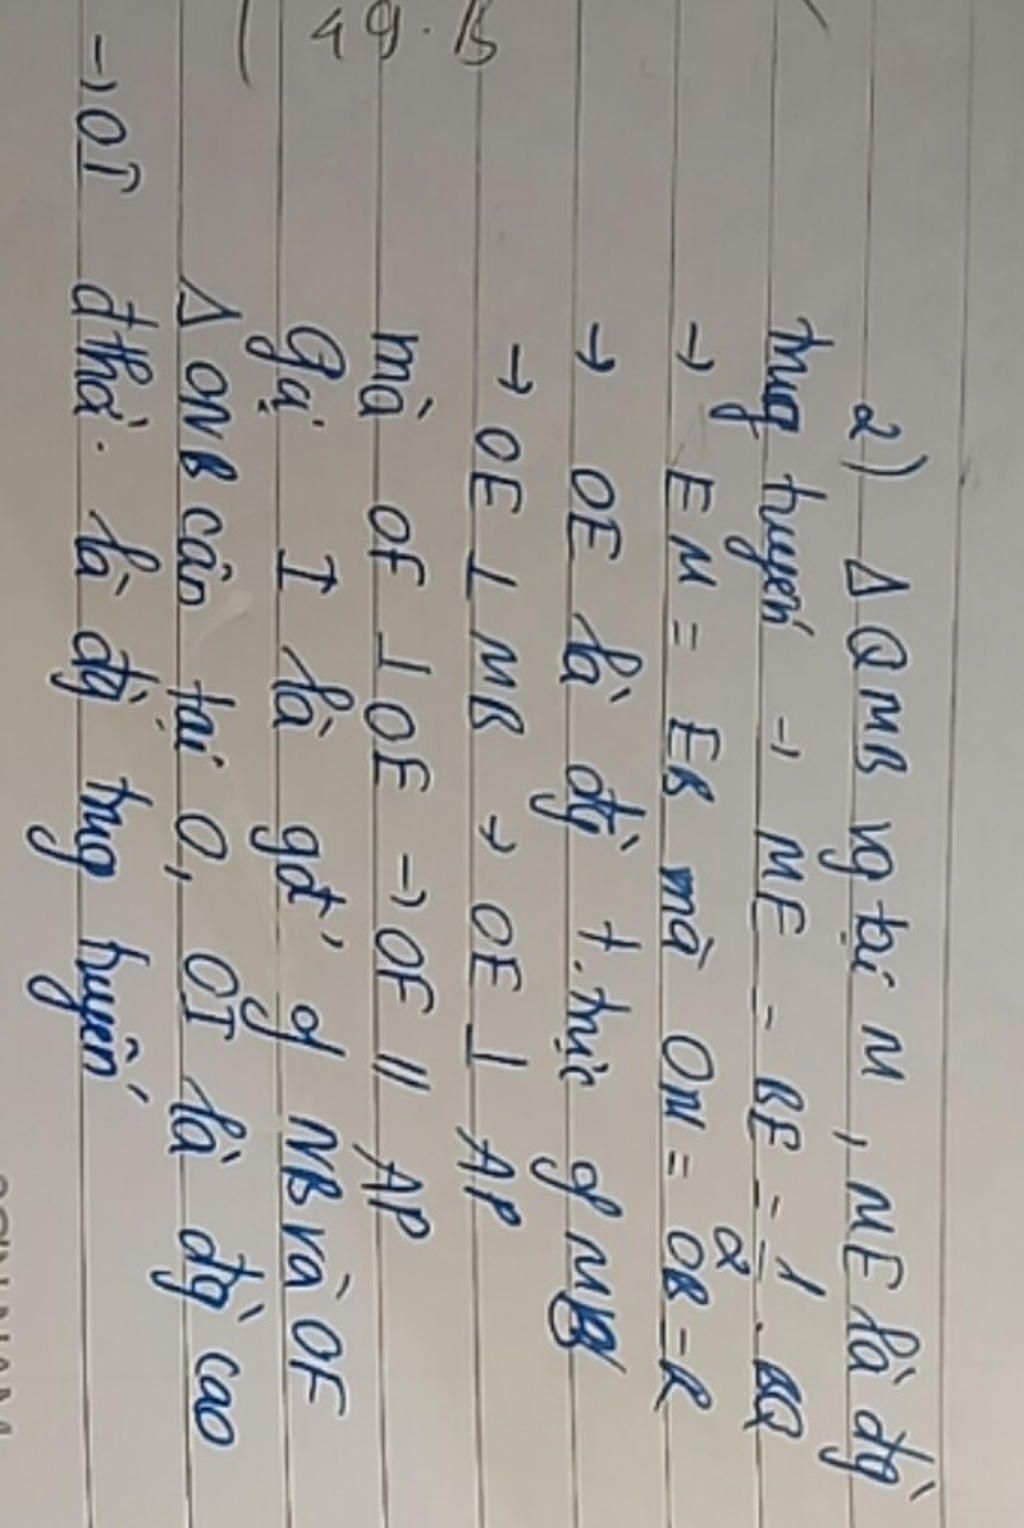 2) Δ QMB vg tại M, ME là đg`
trug tuyến → ME = BE = 1/2 . BQ
→ EM = EB mà OM = OB = R
→ OE là đg` t.trực of MB
→ OE ⊥ MB → OE ⊥ AP
mà OF ⊥ OE → OF // AP
Gọi I là gđ' of NB và OF
Δ ONB cân tại O, OI là đg` cao
→ OI đthời là đg` trug tuyến